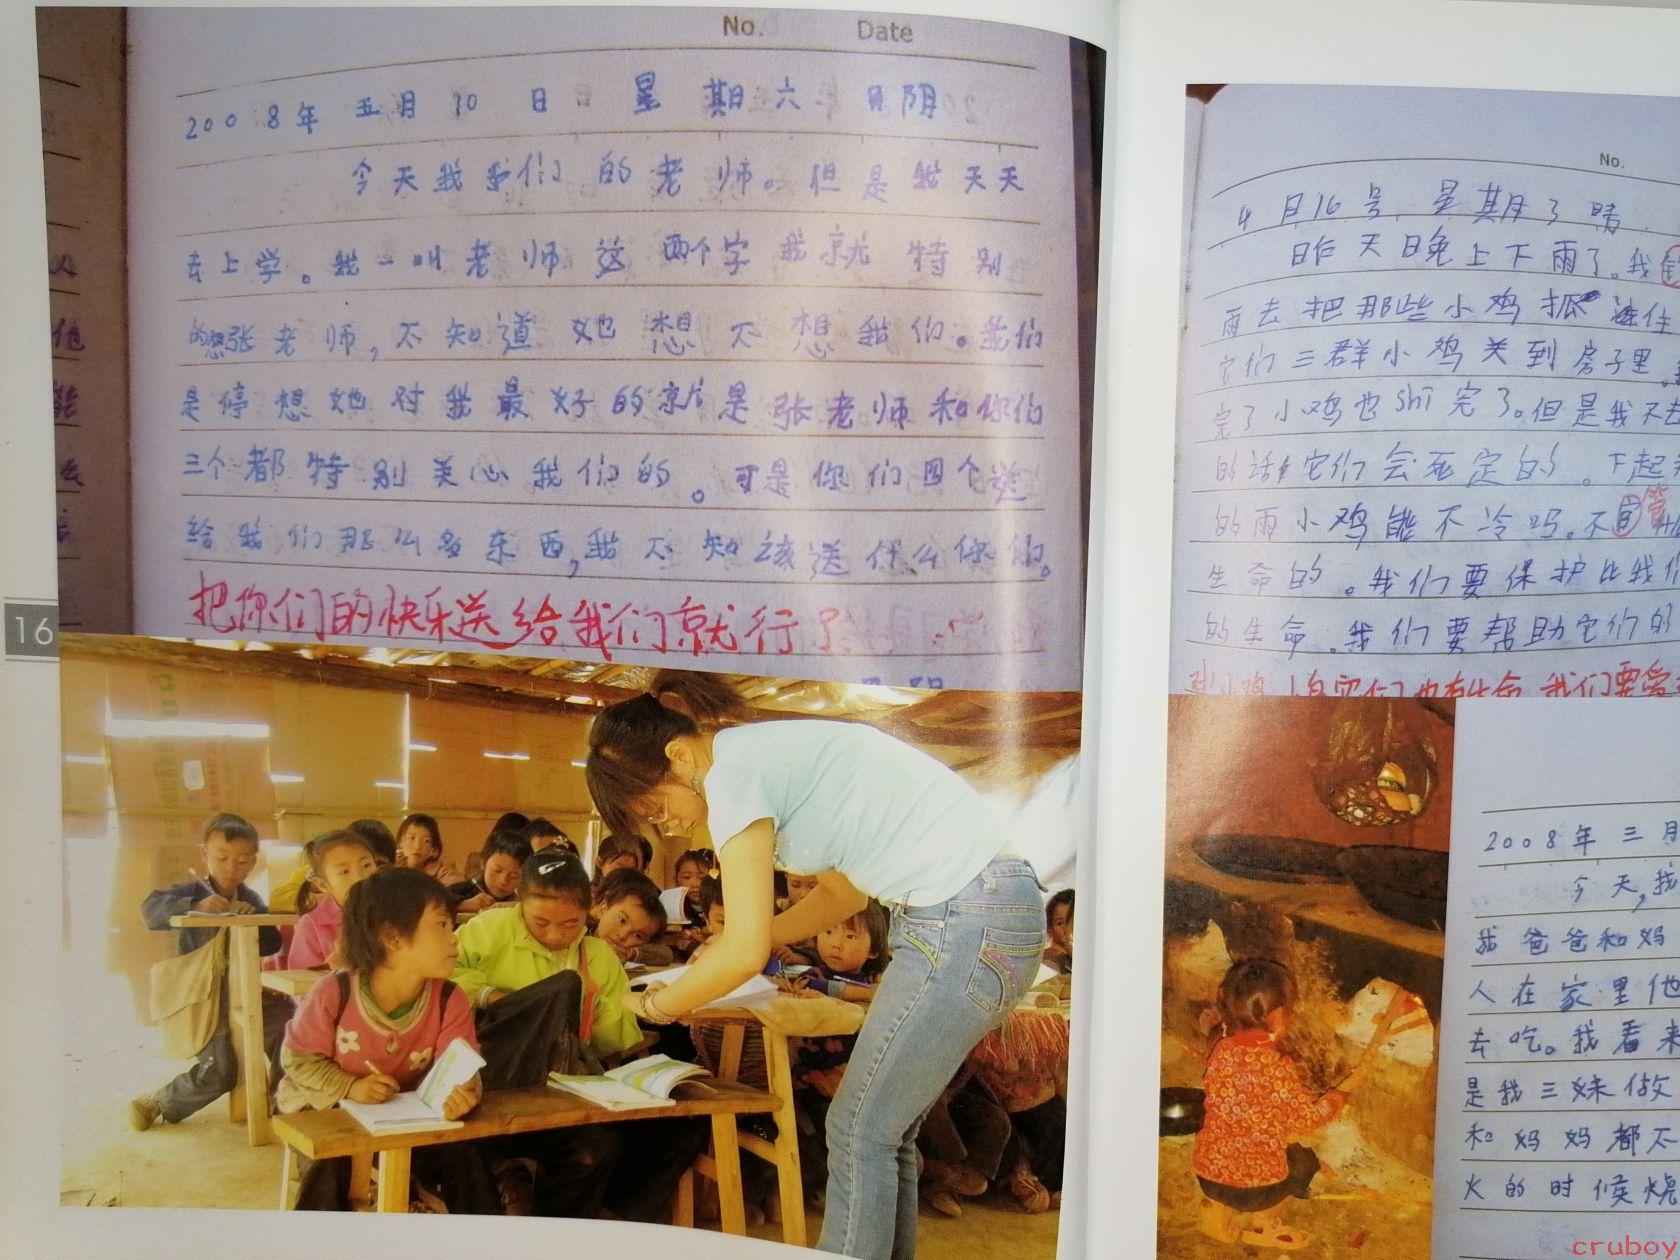 No. Date
2008年 五月 10 日 星期六 阴
今天我和们的老师。但是我天天
去上学。我一叫老师这两个字我就特别
的想张老师,不知道她想不想我们。我们
是停想她对我最好的就是张老师和你们
三个都特别关心我们的。可是你们四个送
给我们那么多东西,我不知该送什么你们。
把你们的快乐送给我们就行了
16
人
他
能
去
No.
4月16号 星期3 晴
昨天日晚上下雨了。我
雨去把那些小鸡抓
它们三群小鸡关到房子里
完了小鸡也shi完了。但是我不去
的话它们会死定的。下起
的雨小鸡能不冷吗。不管
生命的。我们要保护比我们
的生命。我们要帮助它们的
对小鸡 它们也有生命 我们要爱
2008年三月
今天,我
我爸爸和妈
人在家里他
去吃。我看来
是我三妹做
和妈妈都不
火的时候烧
cruboy